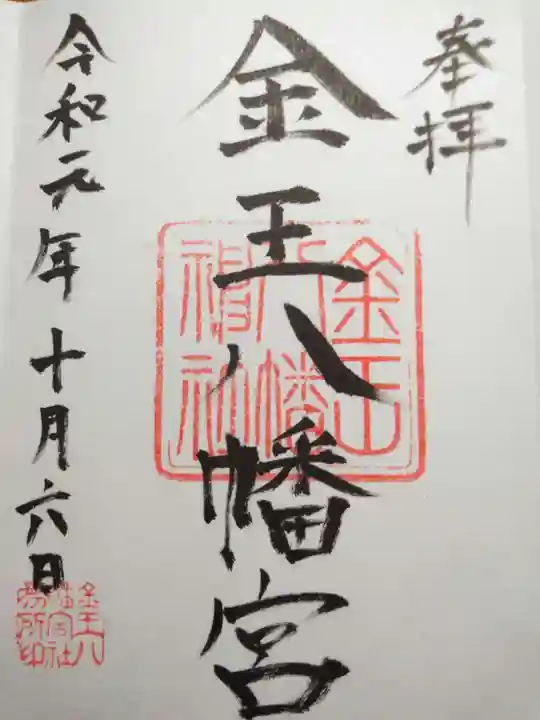 奉拝
金王八幡宮
金王八幡神社
令和元年十月六日
金王八幡宮社務所印